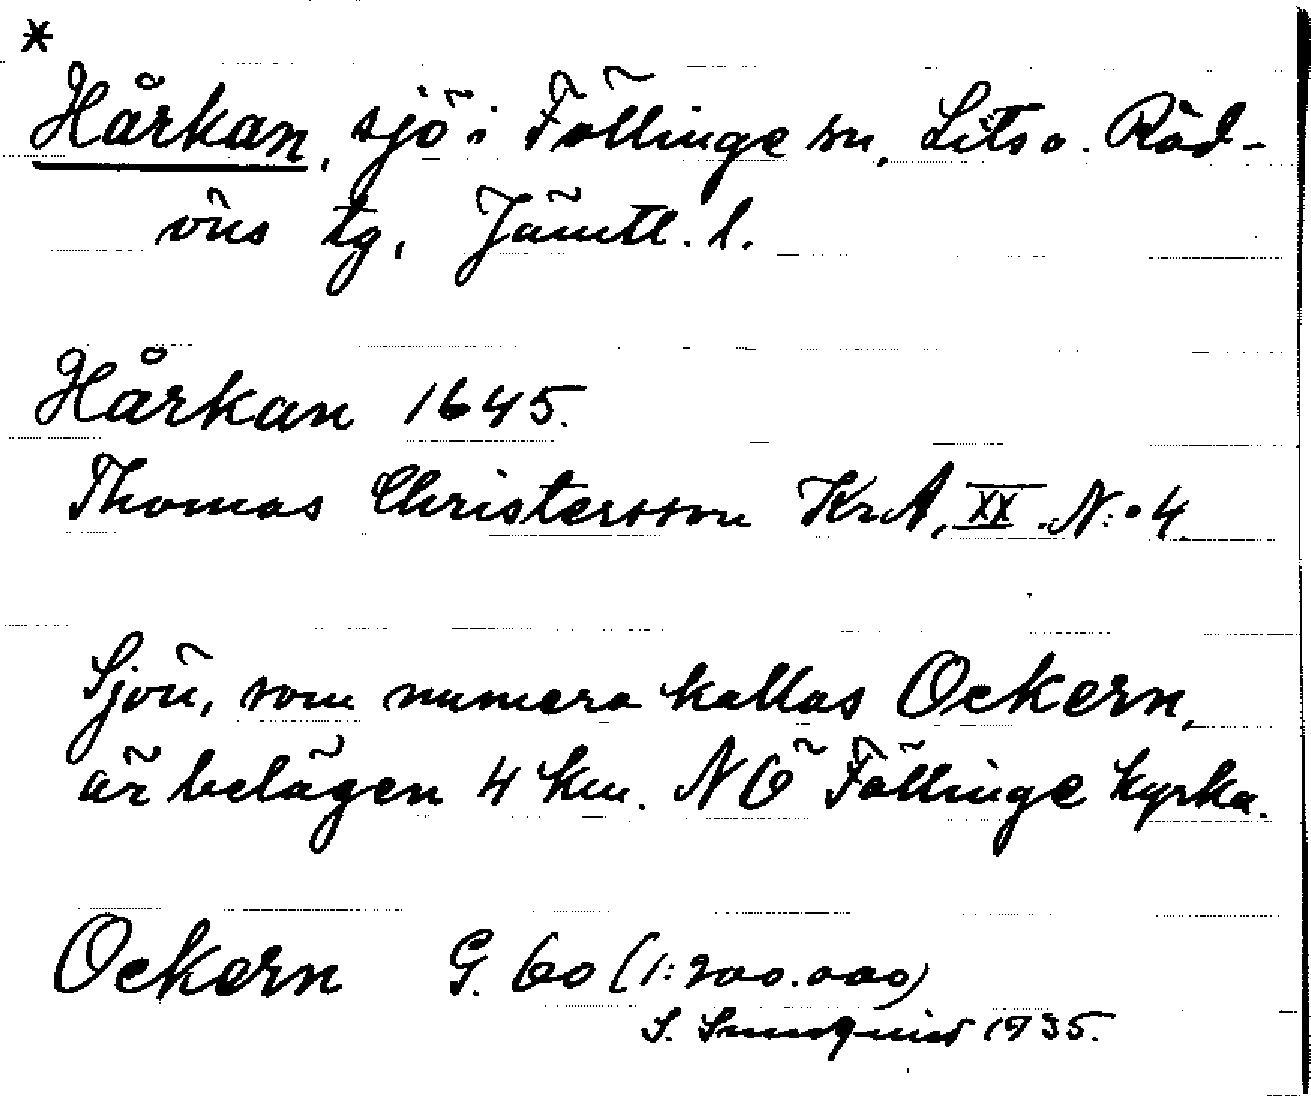 *
Hårkan, sjö i Föllinge sn, Lits o. Röd-
öns tg, Jämtl. l.
Hårkan 1645.
Thomas Christersson KrA, XX. N:o 4.
Sjön, som numera kallas Ockern,
är belägen 4 km. NÖ Föllinge kyrka.
Ockern G. 60 (1:200.000)
S. 1935.